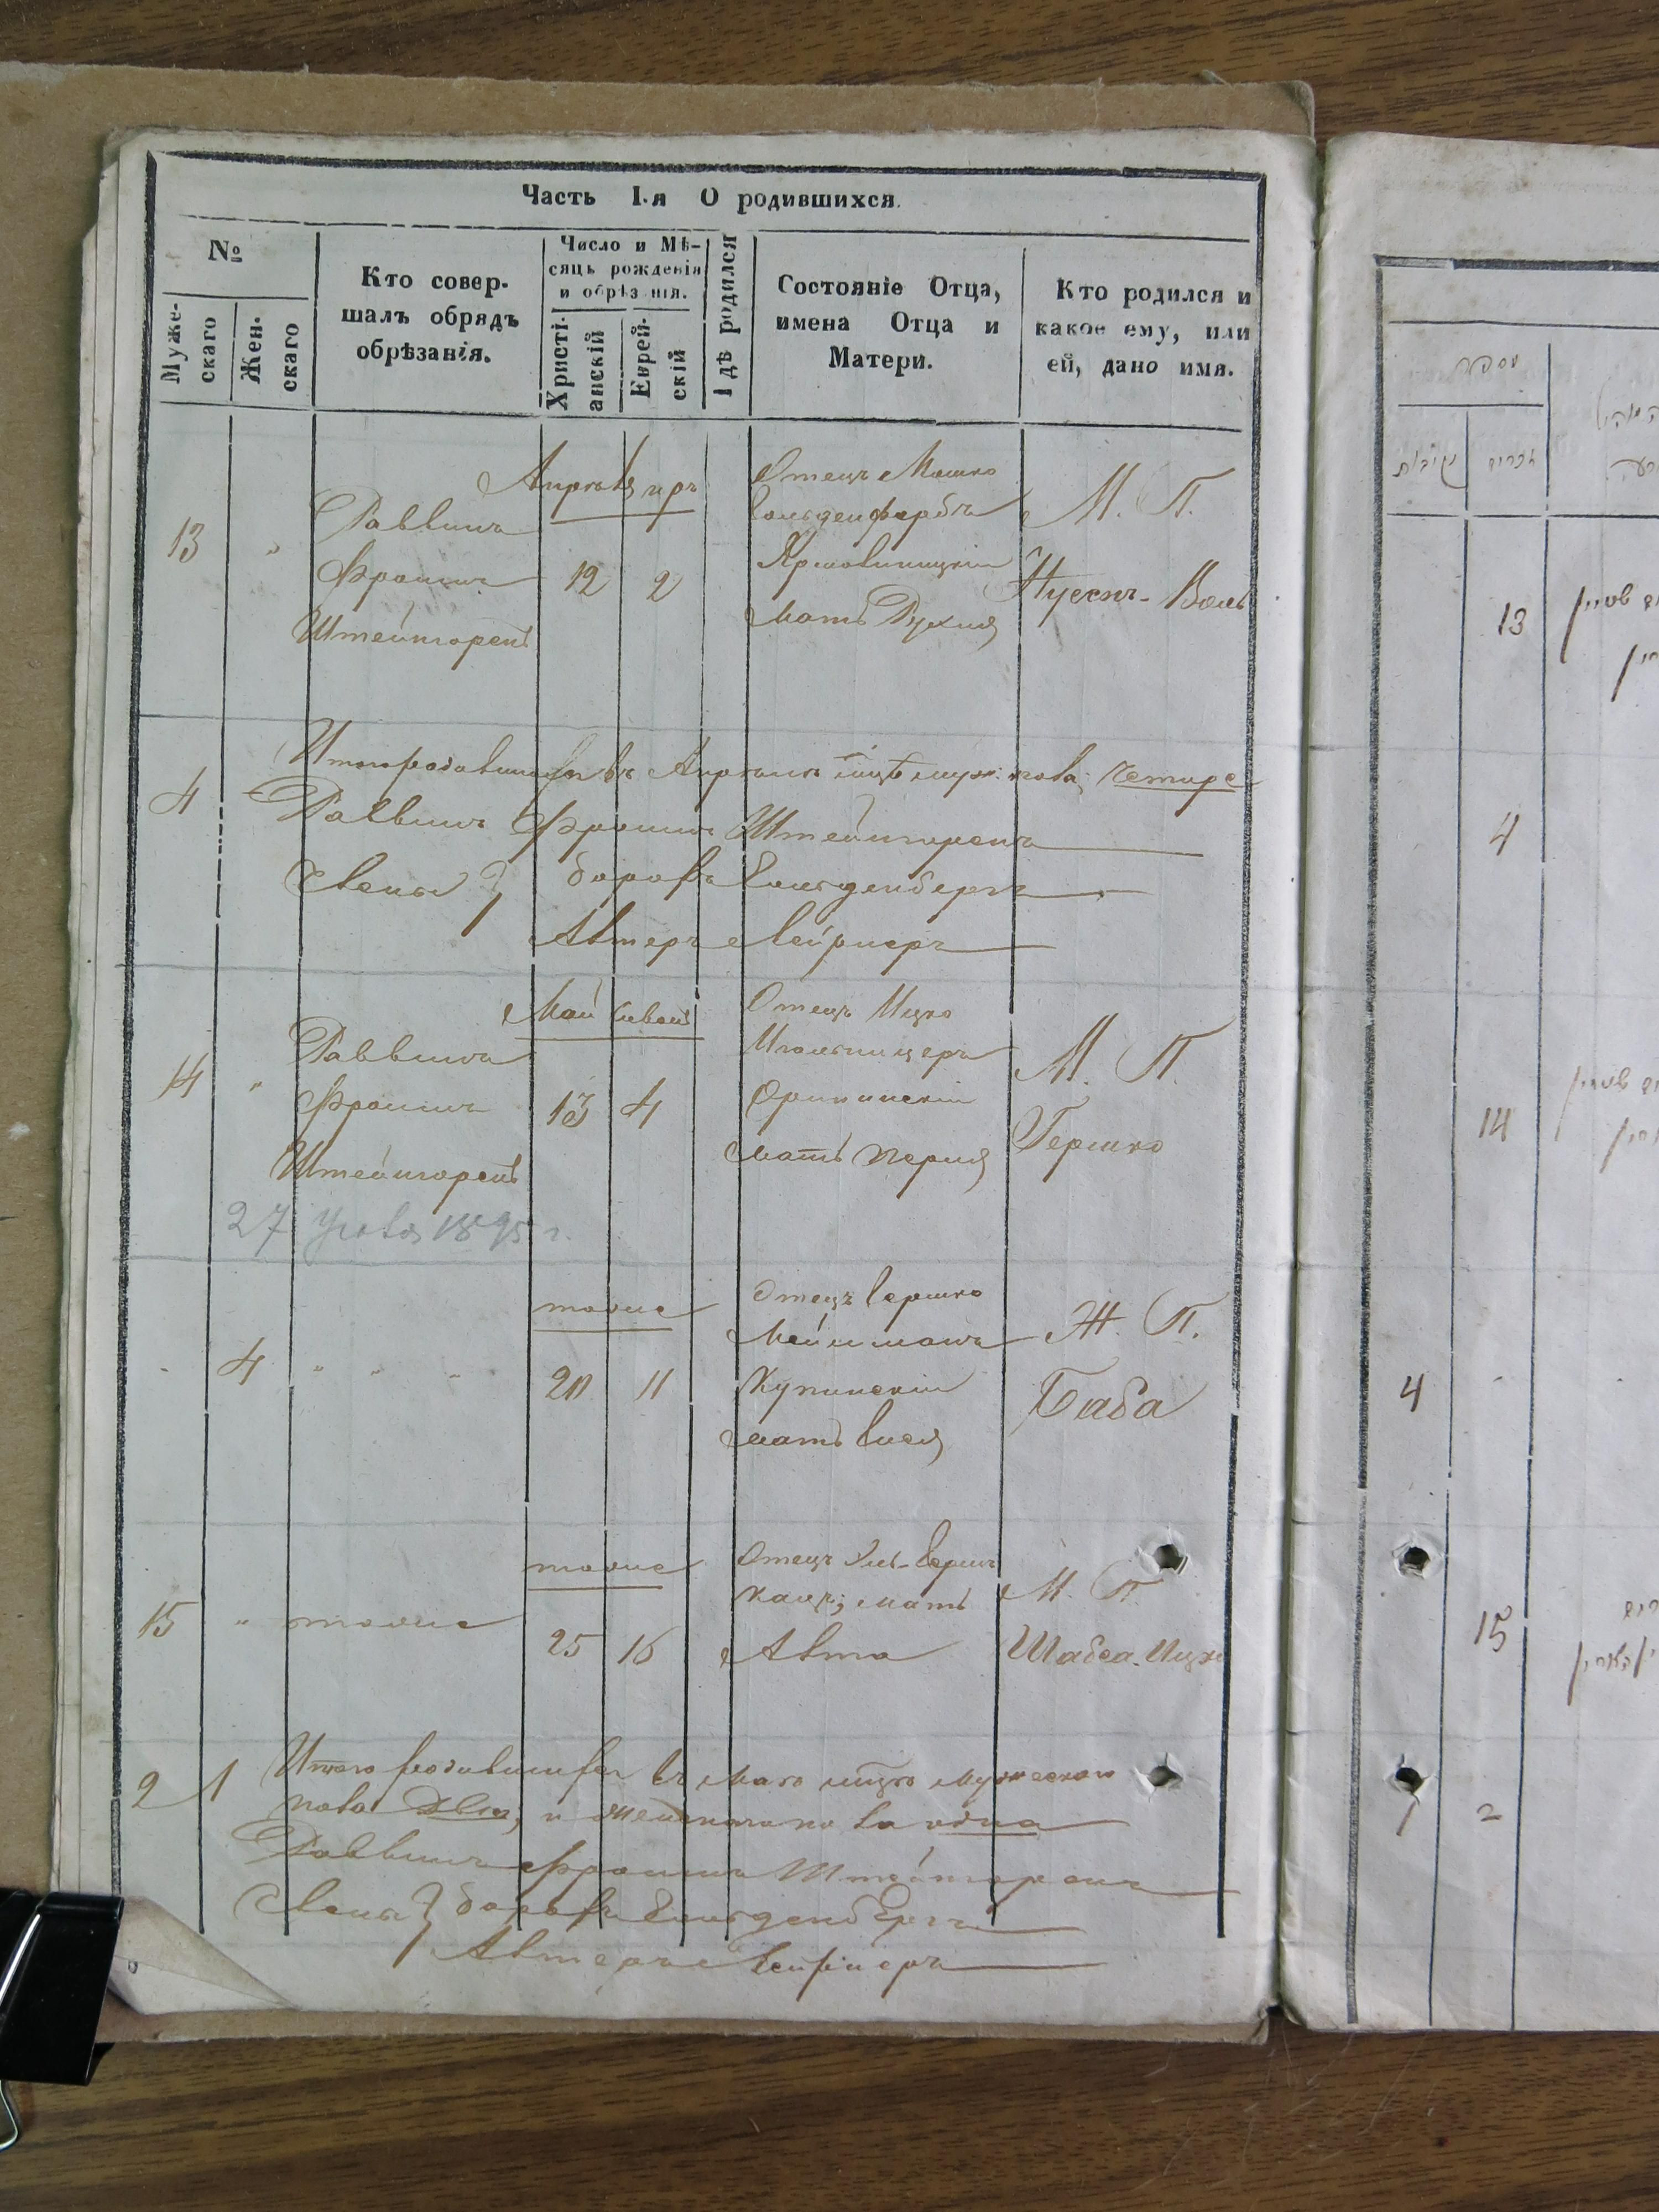 Часть I.я О родившихся.
№
Муже-
скаго
Жен.
скаго
Кто совер-
шалъ обрядъ
обрѣзанія.
Число и Мѣ-
сяцъ рожденія
и обрѣзанія.
Христі-
анскій
Еврей-
скій
Гдѣ родился
Состояніе Отца,
имена Отца и
Матери.
Кто родился и
какое ему, или
ей, дано имя.
13
"
Раввинъ
Фроимъ
Штейнгоренъ
Апрѣль иръ
12 2
Отецъ Мошко
Гольденфарбъ
Ярмолинецкій
мать Рухля
М. П.
Нусснъ-Воль
4
Итого родившихся въ Апрѣлѣ мцѣ муж: пола, четыре
Раввинъ Фроимъ Штейнгоренъ
Члены } Борохъ Гольденбергъ
Алтеръ
14
"
Раввинъ
Фроимъ
Штейнгоренъ
Май сиванъ
13 4
Отецъ Ицко
Игольницеръ
Орининскій
мать Перля
М. П.
Гершко
27 1895 г.
4
" " "
тоже
20 11
Отецъ Гершко
Мейльманъ
Купинскій
мать Гися
Ж. П.
Баба
15
"
тоже
тоже
25 16
Отецъ Гершъ
Кацъ; мать
М. П.
Шабса-Ицко
2 1
Итого родившихся въ Маѣ мцѣ мужеска
пола два, и женскаго пола одна
Раввинъ Фроимъ Штейнгоренъ
Члены } Борохъ Гольденбергъ
Алтеръ
מספר
נקיבות
זכרים
13
4
14
4
15
1
2